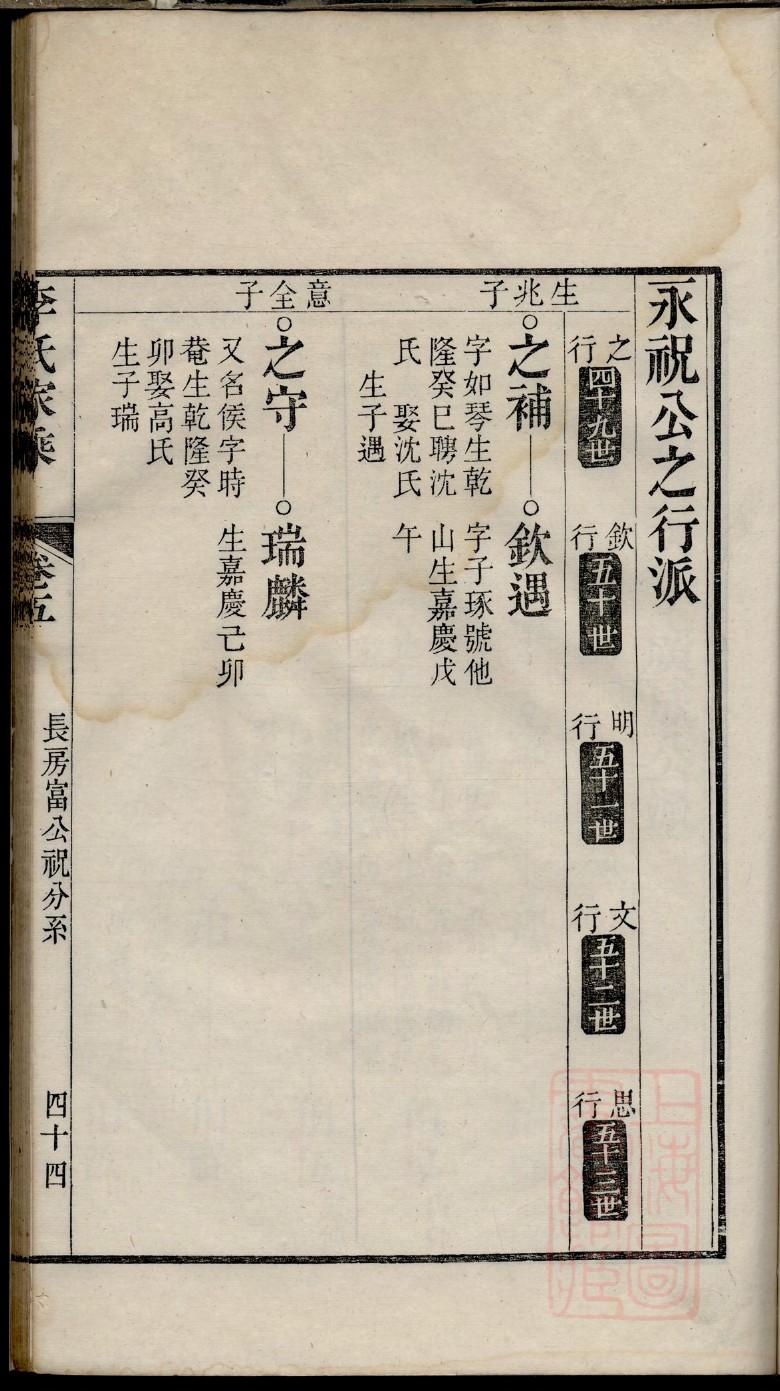 永祝公之行派
之行
四十九世
欽行
五十世
明行
五十一世
文行
五十二世
思行
五十三世
生兆子
之補
欽遇
字如琴生乾
隆癸巳聘沈
氏　娶沈氏
生子遇
字子琢號他
山生嘉慶戊
午
意全子
之守
瑞麟
又名侯字時
菴生乾隆癸
卯娶高氏
生子瑞
生嘉慶己卯
李氏家乘
卷五
長房富公祝分系
四十四
上海圖